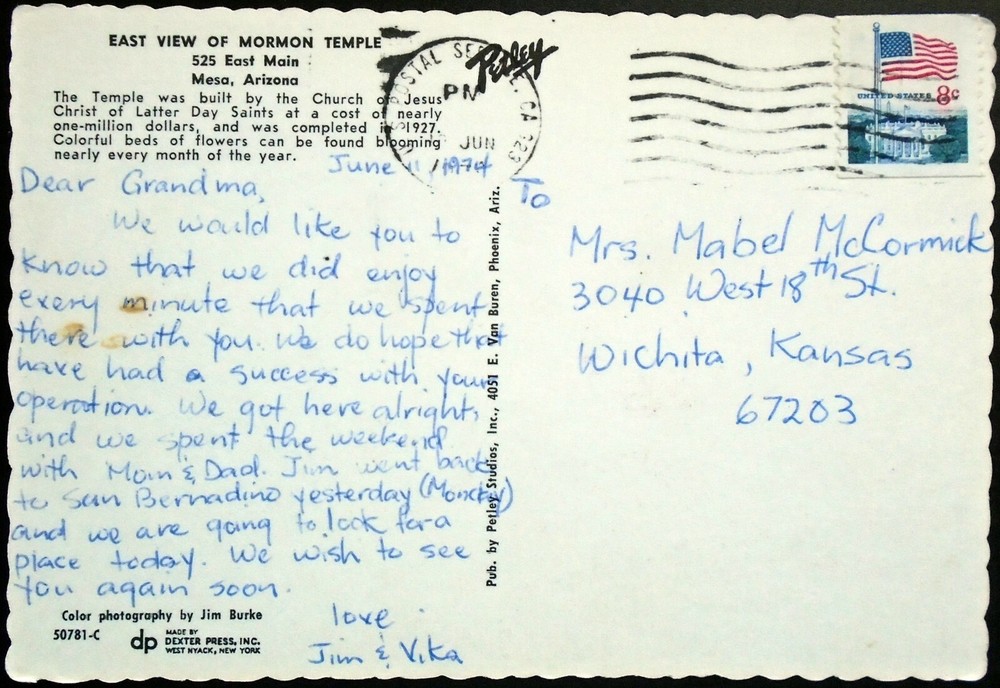 EAST VIEW OF MORMON TEMPLE
525 East Main
Mesa, Arizona
The Temple was built by the Church of Jesus
Christ of Latter Day Saints at a cost of nearly
one-million dollars, and was completed in 1927.
Colorful beds of flowers can be found blooming
nearly every month of the year.
June 11, 1974
Dear Grandma,
We would like you to
know that we did enjoy
every minute that we spent
there with you. We do hope that
have had a success with your
operation. We got here alright,
and we spent the weekend
with Mom & Dad. Jim went back
to San Bernadino yesterday (Monday)
and we are going to look for a
place today. We wish to see
you again soon.
love
Jim & Vika
Color photography by Jim Burke
50781-C
dp
MADE BY
DEXTER PRESS, INC.
WEST NYACK, NEW YORK
Pub. by Petley Studios, Inc., 4051 E. Van Buren, Phoenix, Ariz.
Petley
POSTAL SE
CA 923
PM
JUN
UNITED STATES 8c
To
Mrs. Mabel McCormick
3040 West 18th St.
Wichita, Kansas
67203